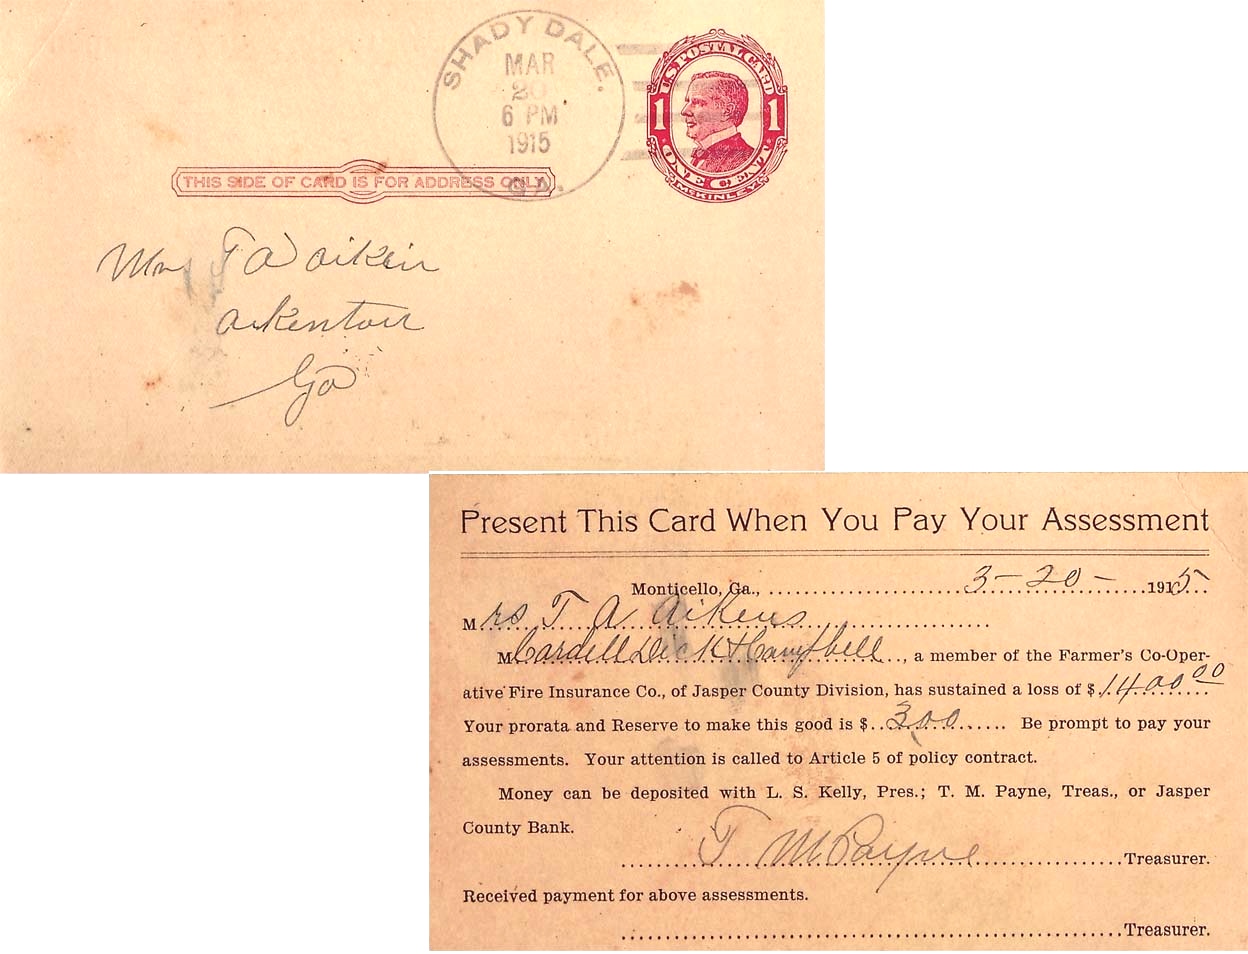 SHADY DALE.
MAR
20
6 PM
1915
GA.
U.S. POSTAL CARD
1 1
ONE CENT
McKINLEY
THIS SIDE OF CARD IS FOR ADDRESS ONLY
Mrs T A aiken
Ga
Present This Card When You Pay Your Assessment
Monticello, Ga., 3-20- 1915
Mrs T A Aikens
M Cardell Dick & Campbell, a member of the Farmer's Co-Oper-
ative Fire Insurance Co., of Jasper County Division, has sustained a loss of $1400.00
Your prorata and Reserve to make this good is $ 3.00 Be prompt to pay your
assessments. Your attention is called to Article 5 of policy contract.
Money can be deposited with L. S. Kelly, Pres.; T. M. Payne, Treas., or Jasper
County Bank.
T M Payne Treasurer.
Received payment for above assessments.
Treasurer.